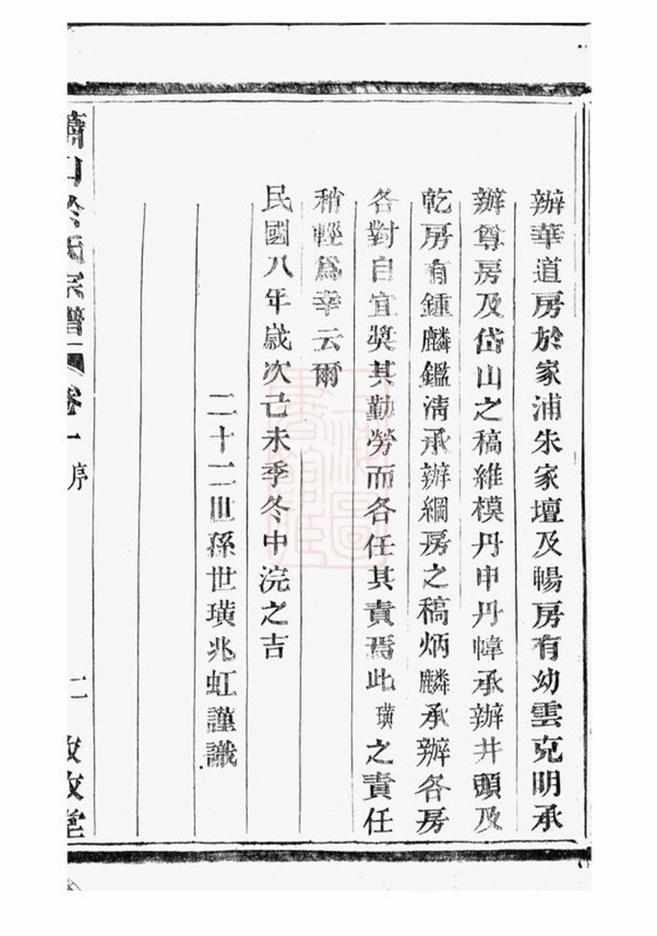 辦華道房於家浦朱家壇及暢房有幼雲克明承
辦尊房及岱山之稿維模丹申丹幃承辦井頭及
乾房有鍾麟鑑清承辦綱房之稿炳麟承辦各房
各對自宜奬其勤勞而各任其責焉此璜之責任
稍輕爲幸云爾
民國八年歲次己未季冬中浣之吉
二十二世孫世璜兆虹謹識
山於氏宗譜
卷一
序
二
敦堂